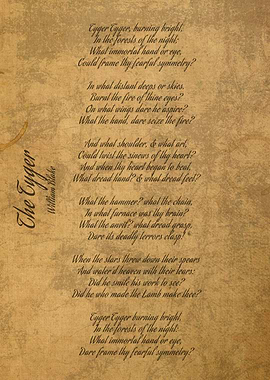 The Tyger
William Blake
Tyger Tyger, burning bright,
In the forests of the night:
What immortal hand or eye,
Could frame thy fearful symmetry?
In what distant deeps or skies,
Burnt the fire of thine eyes?
On what wings dare he aspire?
What the hand, dare seize the fire?
And what shoulder, & what art,
Could twist the sinews of thy heart?
And when thy heart began to beat,
What dread hand? & what dread feet?
What the hammer? what the chain,
In what furnace was thy brain?
What the anvil? what dread grasp,
Dare its deadly terrors clasp!
When the stars threw down their spears
And water'd heaven with their tears:
Did he smile his work to see?
Did he who made the Lamb make thee?
Tyger Tyger burning bright,
In the forests of the night:
What immortal hand or eye,
Dare frame thy fearful symmetry?